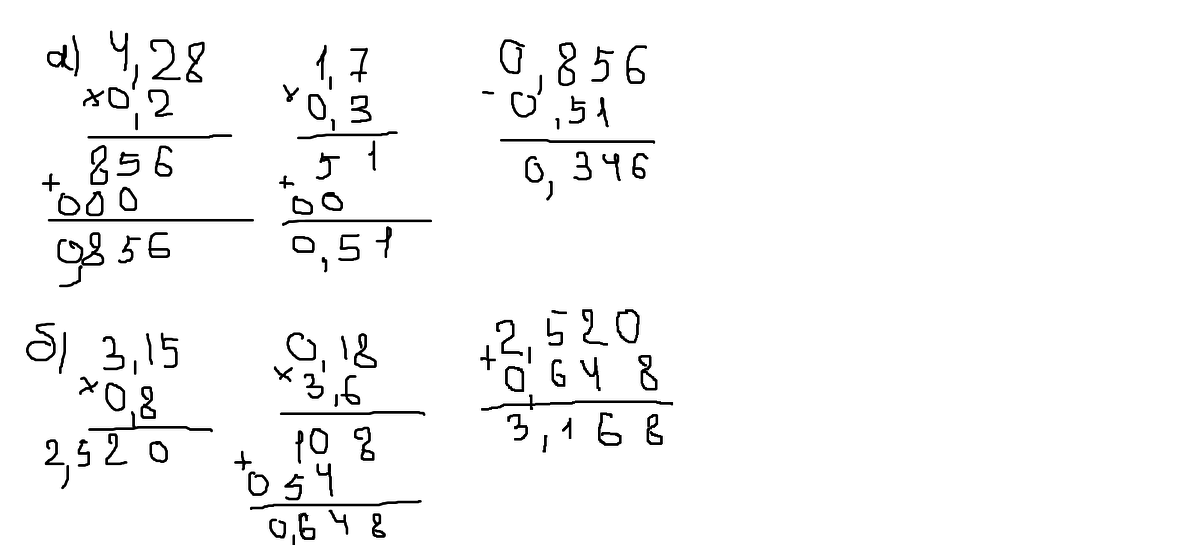 а) 4,28
×0,2
856
+000
0,856
1,7
×0,3
51
+00
0,51
0,856
-0,51
0,346
б) 3,15
×0,8
2,520
0,18
×3,6
108
+054
0,648
2,520
+0,648
3,168